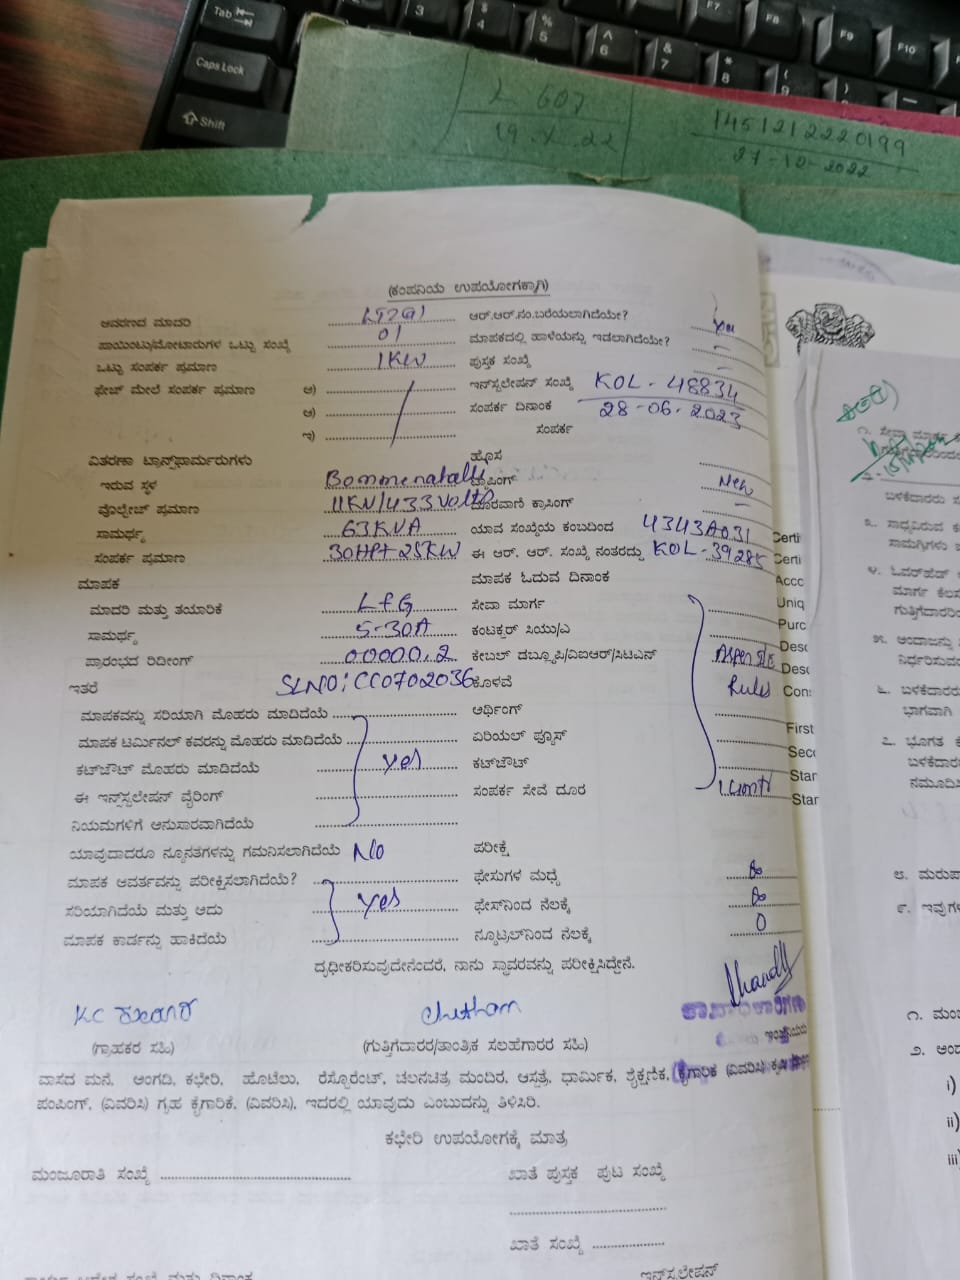 Tab
Caps Lock
Shift
3
$ 4
% 5
^ 6
& 7
* 8
( 9
)
F7
F8
F9
F10
L 607
19.X.22
1451212220199
27-12-2022
(ಕಂಪನಿಯ ಉಪಯೋಗಕ್ಕಾಗಿ)
ಆವರಣದ ಮಾದರಿ ಆರ್.ಆರ್.ನಂ.ಬರೆಯಲಾಗಿದೆಯೇ?
ಪಾಯಿಂಟು/ಮೋಟಾರುಗಳ ಒಟ್ಟು ಸಂಖ್ಯೆ 01 ಮಾಪಕದಲ್ಲಿ ಹಾಳೆಯನ್ನು ಇಡಲಾಗಿದೆಯೇ?
ಒಟ್ಟು ಸಂಪರ್ಕ ಪ್ರಮಾಣ 1KW ಪುಸ್ತಕ ಸಂಖ್ಯೆ
ಫೇಜ್ ಮೇಲೆ ಸಂಪರ್ಕ ಪ್ರಮಾಣ ಇನ್‌ಸ್ಟಲೇಷನ್ ಸಂಖ್ಯೆ KOL-48834
ಸಂಪರ್ಕ ದಿನಾಂಕ 28-06-2023
ಇ) ಸಂಪರ್ಕ
ವಿತರಣಾ ಟ್ರಾನ್ಸ್‌ಫಾರ್ಮರುಗಳು ಹೊಸ
ಇರುವ ಸ್ಥಳ Bommenatalli ಟ್ಯಾಪಿಂಗ್ New
ವೋಲ್ಟೇಜ್ ಪ್ರಮಾಣ 11KV/433Volts ದೂರವಾಣಿ ಕ್ರಾಸಿಂಗ್
ಸಾಮರ್ಥ್ಯ 63KVA ಯಾವ ಸಂಖ್ಯೆಯ ಕಂಬದಿಂದ 4343A031
ಸಂಪರ್ಕ ಪ್ರಮಾಣ 30HP+25KW ಈ ಆರ್. ಆರ್. ಸಂಖ್ಯೆ ನಂತರದ್ದು KOL-39285
ಮಾಪಕ ಮಾಪಕ ಓದುವ ದಿನಾಂಕ
ಮಾದರಿ ಮತ್ತು ತಯಾರಿಕೆ L&G ಸೇವಾ ಮಾರ್ಗ
ಸಾಮರ್ಥ್ಯ 5-30A ಕಂಟಕ್ಟರ್ ಸಿಯು/ಎ
ಪ್ರಾರಂಭದ ರಿಡೀಂಗ್ 00000.2 ಕೇಬಲ್ ಡಬ್ಲ್ಯೂಪಿ/ವಿಐಆರ್/ಸಿಟಿಎನ್ As per
ಇತರೆ SLNO:CC0702036 ಕೊಳವೆ Rules
ಮಾಪಕವನ್ನು ಸರಿಯಾಗಿ ಮೊಹರು ಮಾಡಿದೆಯೆ ಅರ್ಥಿಂಗ್
ಮಾಪಕ ಟರ್ಮಿನಲ್ ಕವರನ್ನು ಮೊಹರು ಮಾಡಿದೆಯೆ ಏರಿಯಲ್ ಫ್ಯೂಸ್
ಕಟ್‌ಔಟ್ ಮೊಹರು ಮಾಡಿದೆಯೆ yes ಕಟ್‌ಔಟ್
ಈ ಇನ್ಸ್‌ಸ್ಟಲೇಷನ್ ವೈರಿಂಗ್ ಸಂಪರ್ಕ ಸೇವೆ ದೂರ
ನಿಯಮಗಳಿಗೆ ಅನುಸಾರವಾಗಿದೆಯೆ
ಯಾವುದಾದರೂ ನ್ಯೂನತೆಗಳನ್ನು ಗಮನಿಸಲಾಗಿದೆಯೆ No ಪರೀಕ್ಷೆ
ಮಾಪಕ ಆವರ್ತವನ್ನು ಪರೀಕ್ಷಿಸಲಾಗಿದೆಯೆ? ಫೇಸುಗಳ ಮಧ್ಯೆ ∞
ಸರಿಯಾಗಿದೆಯೆ ಮತ್ತು ಅದು yes ಫೇಸ್‌ನಿಂದ ನೆಲಕ್ಕೆ ∞
ಮಾಪಕ ಕಾರ್ಡನ್ನು ಹಾಕಿದೆಯೆ ನ್ಯೂಟ್ರಲ್‌ನಿಂದ ನೆಲಕ್ಕೆ 0
ದೃಢೀಕರಿಸುವುದೇನೆಂದರೆ, ನಾನು ಸ್ಥಾವರವನ್ನು ಪರೀಕ್ಷಿಸಿದ್ದೇನೆ.
Chethan
(ಗ್ರಾಹಕರ ಸಹಿ) (ಗುತ್ತಿಗೆದಾರರ/ತಾಂತ್ರಿಕ ಸಲಹೆಗಾರರ ಸಹಿ)
ವಾಸದ ಮನೆ, ಅಂಗಡಿ, ಕಛೇರಿ, ಹೊಟೆಲು, ರೆಸ್ಟೊರೆಂಟ್, ಚಲನಚಿತ್ರ ಮಂದಿರ, ಆಸ್ಪತ್ರೆ, ಧಾರ್ಮಿಕ, ಶೈಕ್ಷಣಿಕ, ಕೈಗಾರಿಕೆ (ವಿವರಿಸಿ)
ಪಂಪಿಂಗ್, (ವಿವರಿಸಿ) ಗೃಹ ಕೈಗಾರಿಕೆ, (ವಿವರಿಸಿ), ಇದರಲ್ಲಿ ಯಾವುದು ಎಂಬುದನ್ನು ತಿಳಿಸಿರಿ.
ಕಛೇರಿ ಉಪಯೋಗಕ್ಕೆ ಮಾತ್ರ
ಮಂಜೂರಾತಿ ಸಂಖ್ಯೆ ಖಾತೆ ಪುಸ್ತಕ ಪುಟ ಸಂಖ್ಯೆ
ಖಾತೆ ಸಂಖ್ಯೆ
ಇನ್‌ಸ್ಟಲೇಷನ್
Certi
Certi
Accc
Uniq
Purc
Desc
Desc
Con
First
Secc
Star
Star
i)
ii)
iii)